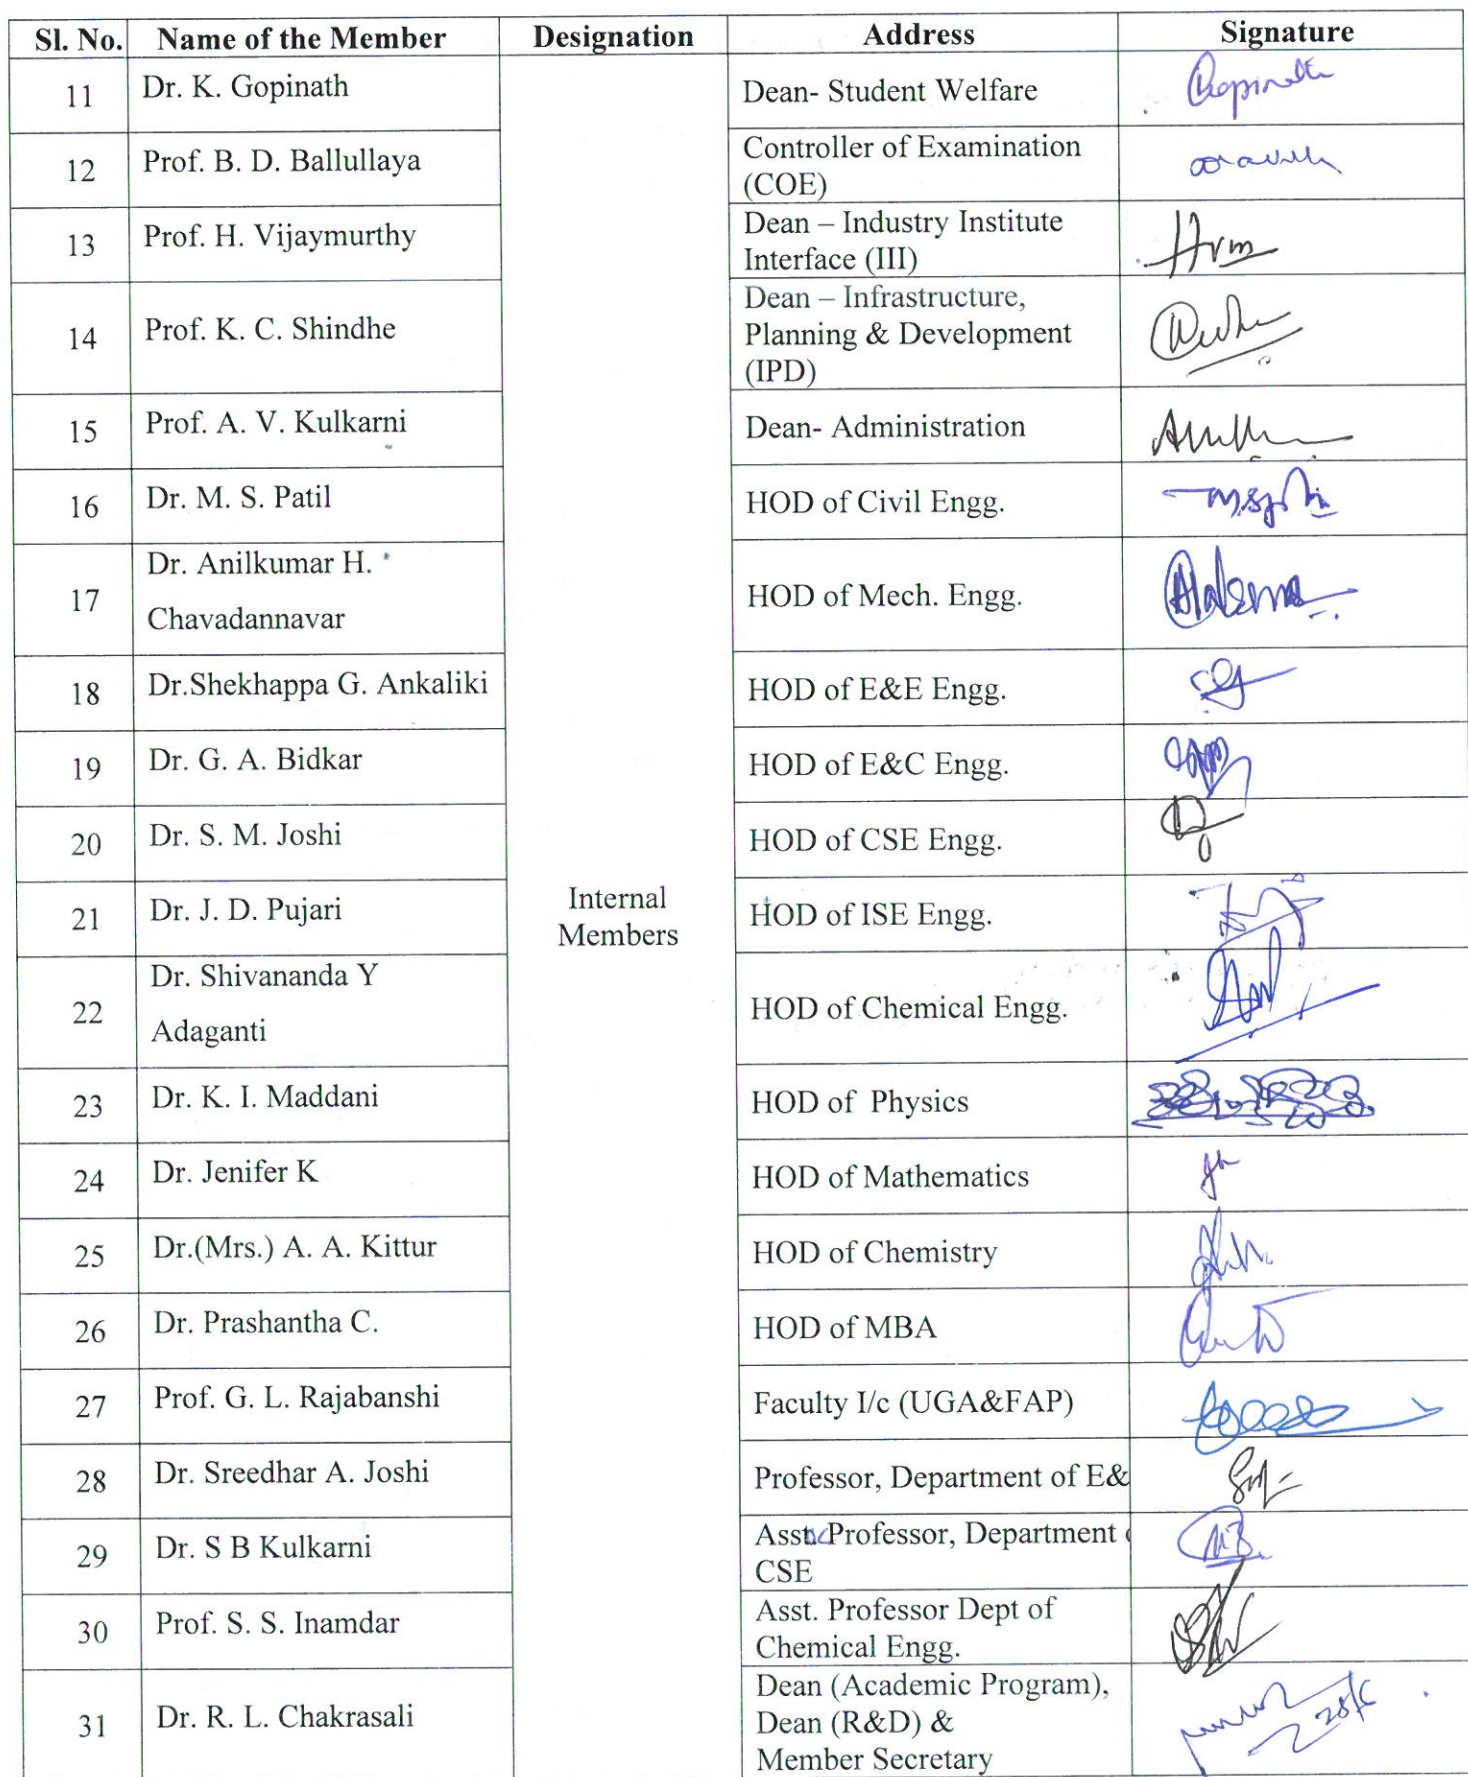 Sl. No. Name of the Member Designation Address Signature
11 Dr. K. Gopinath Dean- Student Welfare Gopinath
12 Prof. B. D. Ballullaya Controller of Examination
(COE)
13 Prof. H. Vijaymurthy Dean – Industry Institute
Interface (III) Hvm
14 Prof. K. C. Shindhe Dean – Infrastructure,
Planning & Development
(IPD)
15 Prof. A. V. Kulkarni Dean- Administration
16 Dr. M. S. Patil HOD of Civil Engg.
17 Dr. Anilkumar H.
Chavadannavar HOD of Mech. Engg.
18 Dr.Shekhappa G. Ankaliki HOD of E&E Engg.
19 Dr. G. A. Bidkar HOD of E&C Engg.
20 Dr. S. M. Joshi HOD of CSE Engg.
Internal
Members
21 Dr. J. D. Pujari HOD of ISE Engg.
22 Dr. Shivananda Y
Adaganti HOD of Chemical Engg.
23 Dr. K. I. Maddani HOD of Physics
24 Dr. Jenifer K HOD of Mathematics
25 Dr.(Mrs.) A. A. Kittur HOD of Chemistry
26 Dr. Prashantha C. HOD of MBA
27 Prof. G. L. Rajabanshi Faculty I/c (UGA&FAP)
28 Dr. Sreedhar A. Joshi Professor, Department of E&
29 Dr. S B Kulkarni Professor, Department
CSE
30 Prof. S. S. Inamdar Asst. Professor Dept of
Chemical Engg.
31 Dr. R. L. Chakrasali Dean (Academic Program),
Dean (R&D) &
Member Secretary 28/6